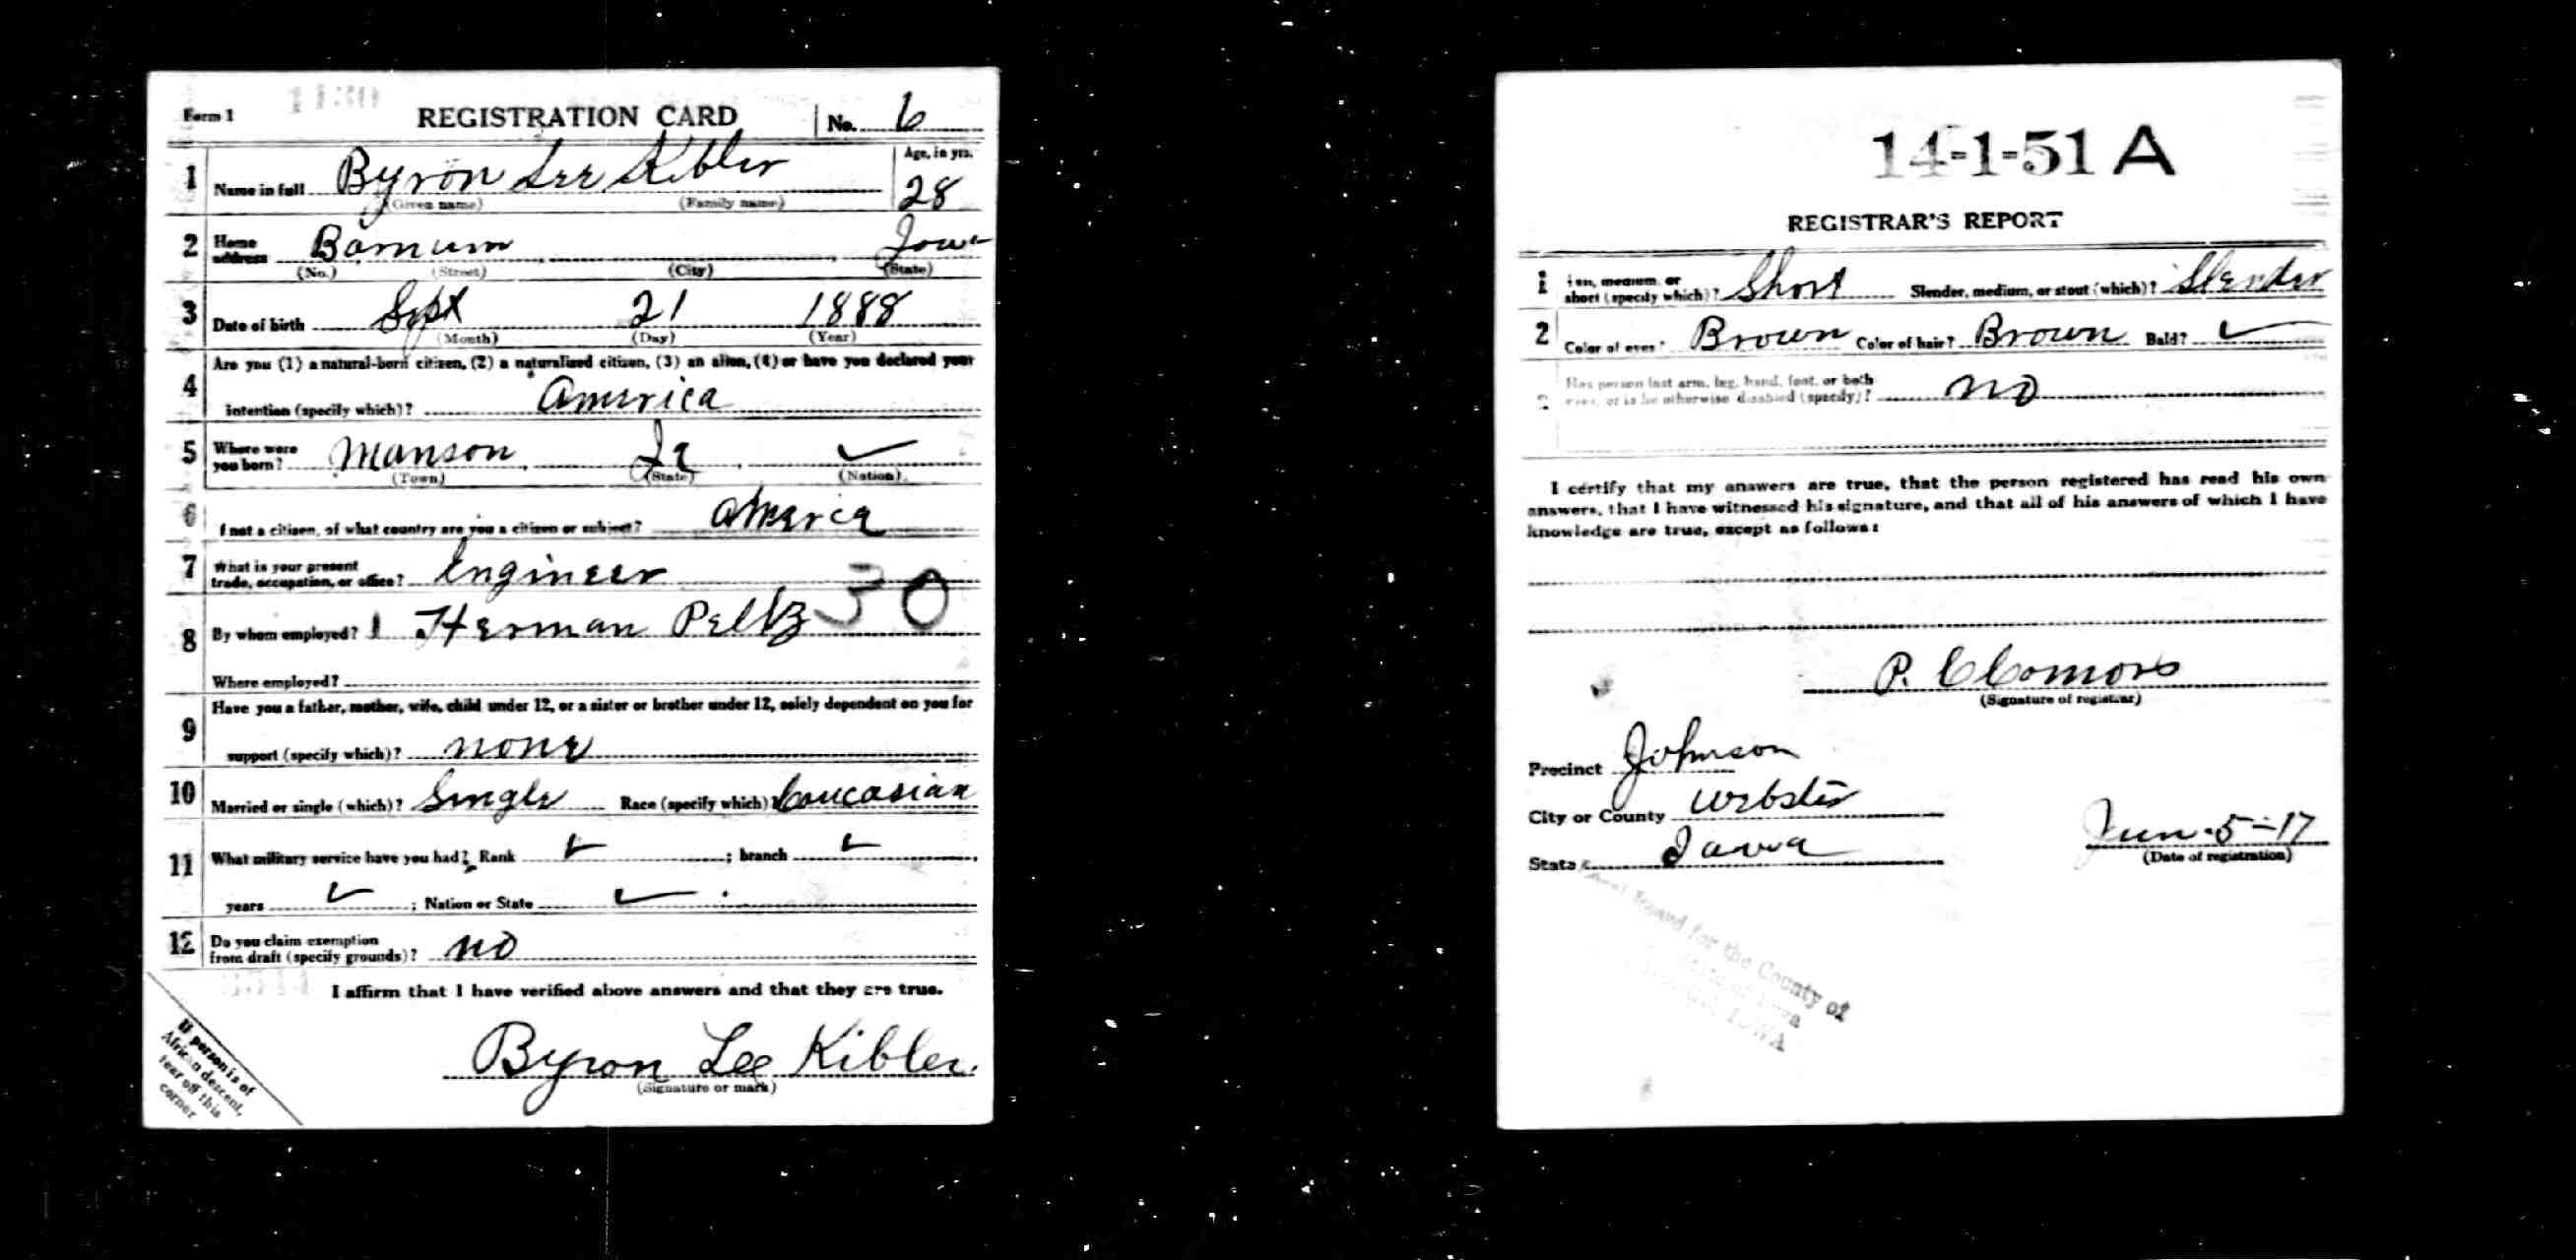 Form 1
REGISTRATION CARD No. 6
1 Name in full Byron Lee Kibler Age, in yrs.
(Given name) (Family name) 28
2 Home address Barnum Iowa
(No.) (Street) (City) (State)
3 Date of birth Sept 21 1888
(Month) (Day) (Year)
Are you (1) a natural-born citizen, (2) a naturalized citizen, (3) an alien, (4) or have you declared your
4 intention (specify which)? America
5 Where were you born? Manson, Ia, ✓
(Town) (State) (Nation)
6 If not a citizen, of what country are you a citizen or subject? America
7 What is your present trade, occupation, or office? Engineer
30
8 By whom employed? Herman Peltz
Where employed?
Have you a father, mother, wife, child under 12, or a sister or brother under 12, solely dependent on you for
9 support (specify which)? none
10 Married or single (which)? Single Race (specify which)? Caucasian
11 What military service have you had? Rank ✓ ; branch ✓
years ✓ ; Nation or State ✓
12 Do you claim exemption from draft (specify grounds)? no
I affirm that I have verified above answers and that they are true.
Byron Lee Kibler.
(Signature or mark)
If person is of
African descent,
tear off this
corner
14-1-51 A
REGISTRAR'S REPORT
1 Tall, medium, or short (specify which)? Short Slender, medium, or stout (which)? Slender
2 Color of eyes? Brown Color of hair? Brown Bald? ✓
Has person lost arm, leg, hand, foot, or both
eyes, or is he otherwise disabled (specify)? no
I certify that my answers are true, that the person registered has read his own
answers, that I have witnessed his signature, and that all of his answers of which I have
knowledge are true, except as follows:
(Signature of registrar)
Precinct Johnson
City or County Webster
State Iowa
Jun-5-17
(Date of registration)
for the County of
State of Iowa
IOWA